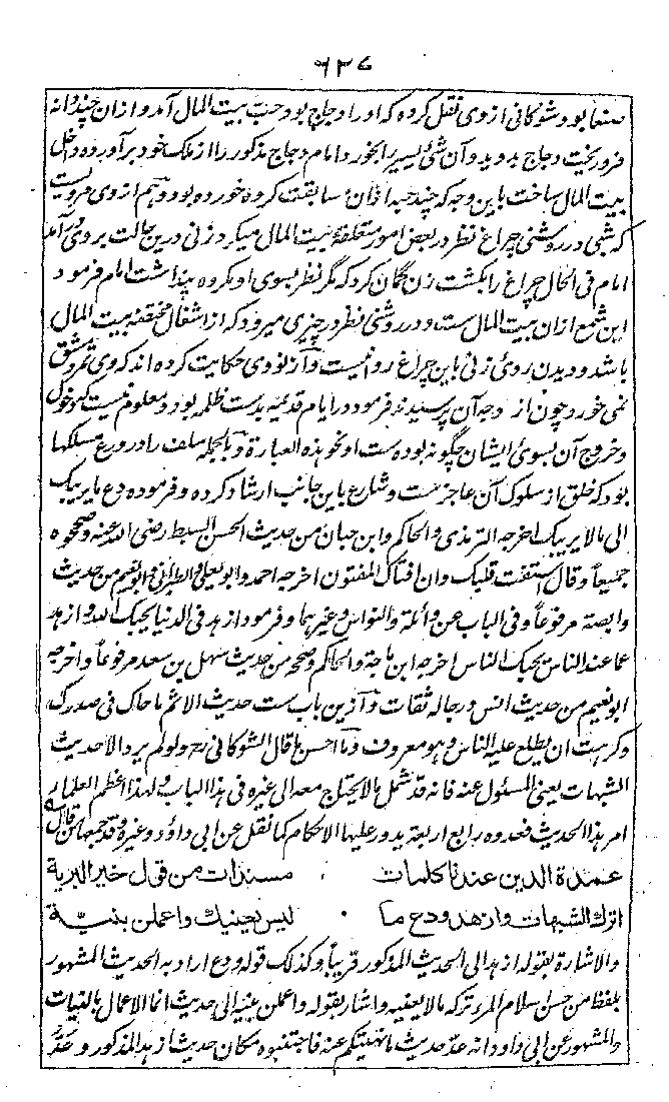 ۶۳۷
صنعا بود و شوکانی از وی نقل کرده که او را دجاج بود حب بیت المال آمد و ازان چند دانه
فرو ریخت دجاج بدوید و آن شئ یسیر را بخورد امام دجاج مذکور را از ملک خود برآورده داخل
بیت المال ساخت باین وجه که چند حبه ازان سابقت کرده خورده بود و هم از وی مرویست
که شبی در روشنی چراغ نظر در بعض امور متعلقهٔ بیت المال میکرد زنی درین حالت بر وی درآمد
امام فی الحال چراغ را بکشت زن گمان کرد که مگر نظر بسوی او مکروه پنداشت امام فرمود
این شمع ازان بیت المال ست و در روشنی نظر در چیزی میرود که از اشغال مختصهٔ بیت المال
باشد و دیدن روئ زنی باین چراغ روا نیست و از نووی حکایت کرده اند که وی ثمر دمشق
نمی خورد چون از وجه آن پرسیدند فرمود در ایام قدیمه بدست ظلمه بود و معلوم نیست که دخول
و خروج آن بسوئ ایشان چگونه بوده ست او نحو هذه العبارة و بالجمله سلف را در ورع مسلکها
بود که خلق از سلوک آن عاجز ست و شارع باین جانب ارشاد کرده و فرموده دع ما یریبک
الی ما لا یریبک اخرجه الترمذی و الحاکم و ابن حبان من حدیث الحسن السبط رضی الله عنه و صححوه
جمیعاً و قال استفت قلبک و ان افتاک المفتون اخرجه احمد و ابو یعلی و الطبرانی و ابو نعیم من حدیث
وابصة مرفوعاً و فی الباب عن واثلة و النواس و غیرهما و فرمود ازهد فی الدنیا یحبک الله و ازهد
عما عند الناس یحبک الناس اخرجه ابن ماجة و الحاکم و صححه من حدیث سهل بن سعد مرفوعاً و اخرجه
ابو نعیم من حدیث انس و رجاله ثقات و ازین باب ست حدیث الاثم ما حاک فی صدرک
و کرهت ان یطلع علیه الناس و هو معروف و ما احسن ما قال الشوکانی رح و لو لم یرد الا حدیث
الشبهات یعنی المسئول عنه فانه قد شمل ما لا یحتاج معه الی غیره فی هذا الباب و لهذا اعظم العلماء
امر هذا الحدیث فعدوه رابع اربعة یدور علیها الاحکام کما نقل عن ابی داؤد و غیره و قد جمعها من قال
عمدة الدین عندنا کلمات مسندات من قول خیر البریة
اترک الشبهات و ازهد و دع ما لیس یعنیک و اعملن بنیة
و الاشارة بقوله ازهد الی الحدیث المذکور قریباً و کذلک قوله و دع اراد به الحدیث المشهور
بلفظ من حسن اسلام المرء ترکه ما لا یعنیه و اشار بقوله و اعملن بنیة الی حدیث انما الاعمال بالنیات
و المشهور عن ابی داود انه عد حدیث ما نهیتکم عنه فاجتنبوه مکان حدیث ازهد المذکور و عد